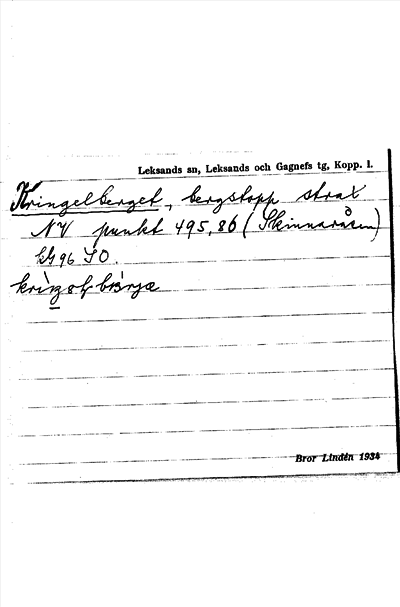 Leksands sn, Leksands och Gagnefs tg, Kopp. l.
Kringelberget, bergstopp strax
NV punkt 495,86 (Skinnaråsen)
96 SO.
Bror Lindén 1934